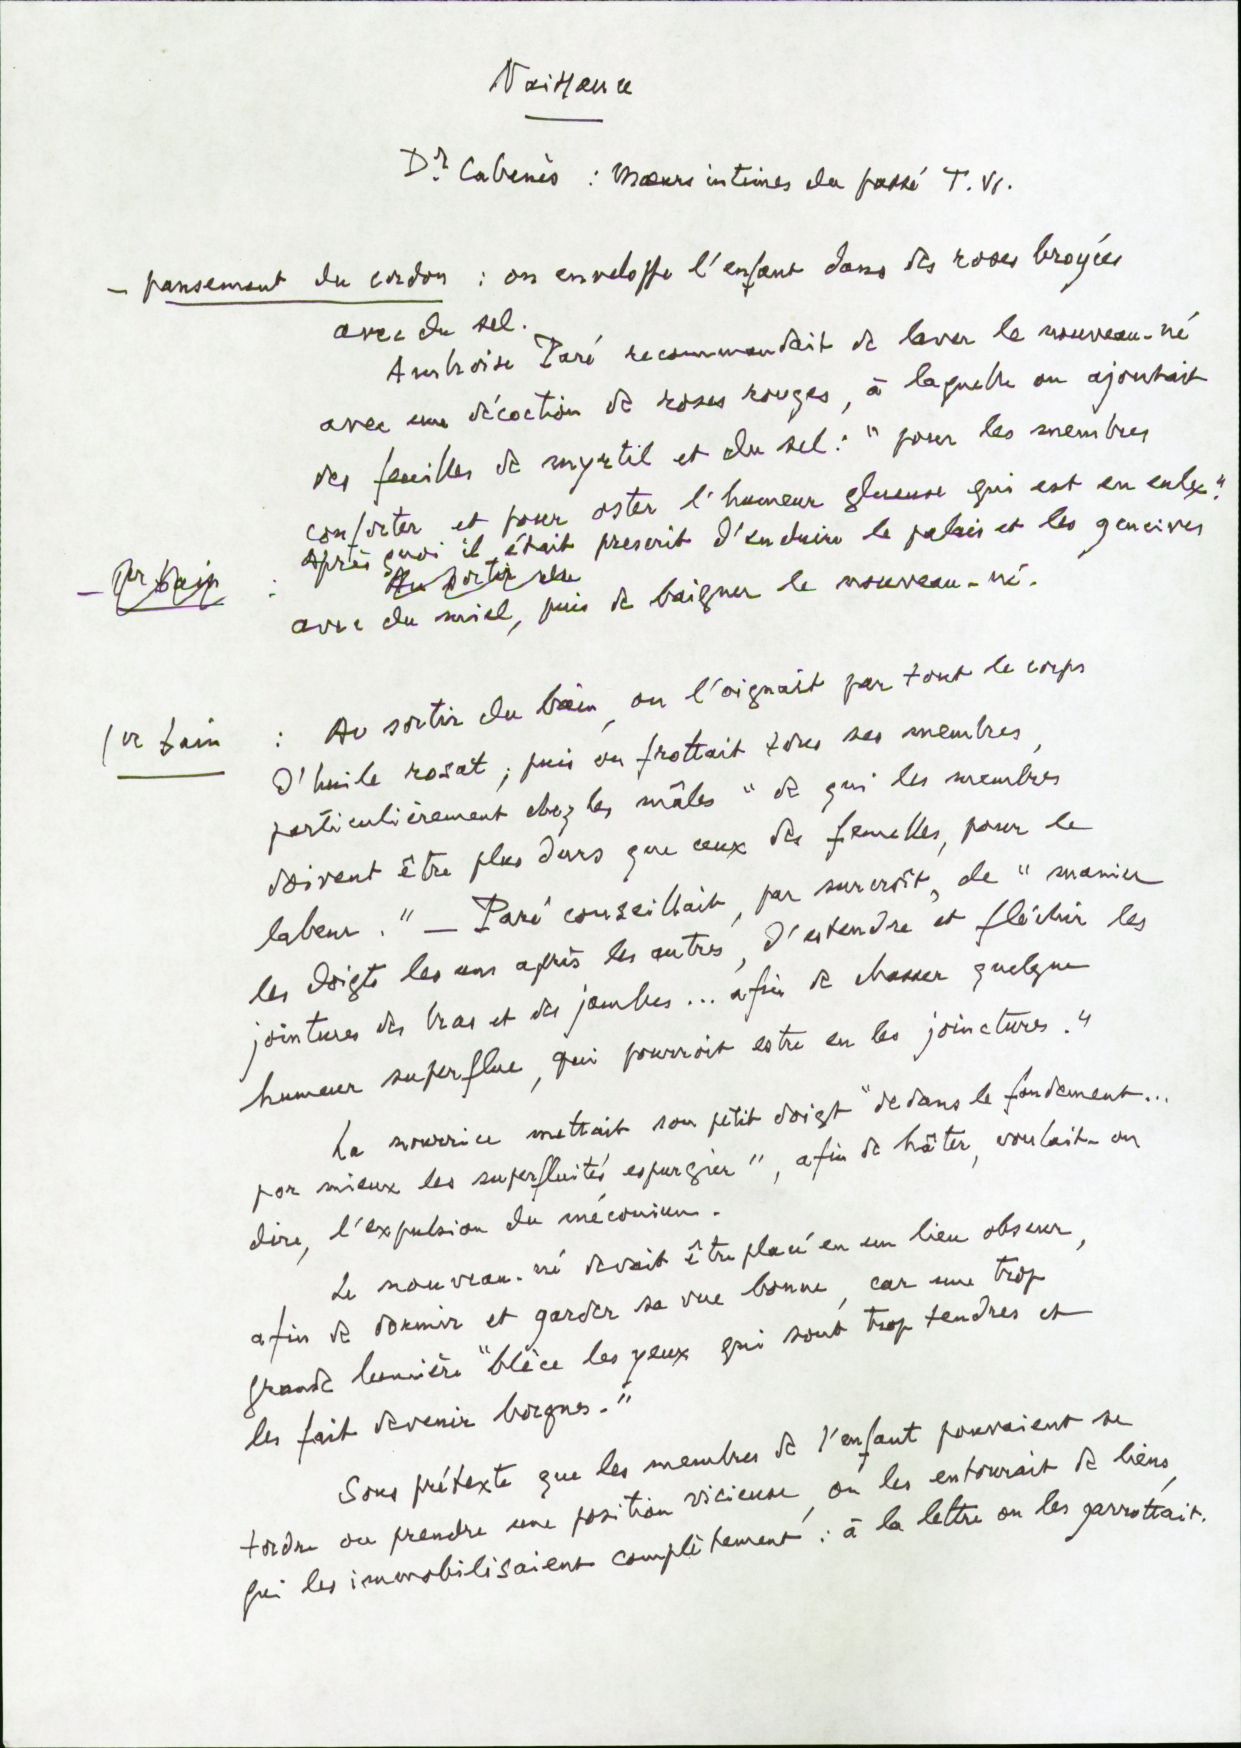 Naissance
Dr. Cabanès : Mœurs intimes du passé T. VI.
– pansement du cordon : on enveloppe l'enfant dans des roses broyées
avec du sel.
Ambroise Paré recommandait de laver le nouveau-né
avec une décoction de roses rouges, à laquelle on ajoutait
des feuilles de myrtil et du sel : " pour les membres
conforter et pour oster l'humeur glueuse qui est en eulx."
Après quoi il était prescrit d'enduire le palais et les gencives
– 1er bain : Au sortir du
avec du miel, puis de baigner le nouveau-né.
1er bain : Au sortir du bain, on l'oignait par tout le corps
d'huile rosat ; puis on frottait tous ses membres,
particulièrement chez les mâles " de qui les membres
doivent être plus durs que ceux des femelles, pour le
labeur." – Paré conseillait, par surcroît, de " manier
les doigts les uns après les autres, d'estendre et fléchir les
jointures des bras et des jambes... afin de chasser quelque
humeur superflue, qui pourroit estre en les joinctures."
La nourrice mettait son petit doigt " dedans le fondement...
por mieux les superfluités espurgier", afin de hâter, voulait-on
dire, l'expulsion du méconium.
Le nouveau-né devait être placé en un lieu obscur,
afin de dormir et garder sa vue bonne, car une trop
grande lumière "blèce les yeux qui sont trop tendres et
les fait devenir borgnes."
Sous prétexte que les membres de l'enfant pouvaient se
tordre ou prendre une position vicieuse, on les entourait de liens,
qui les immobilisaient complètement : à la lettre on les garrottait.